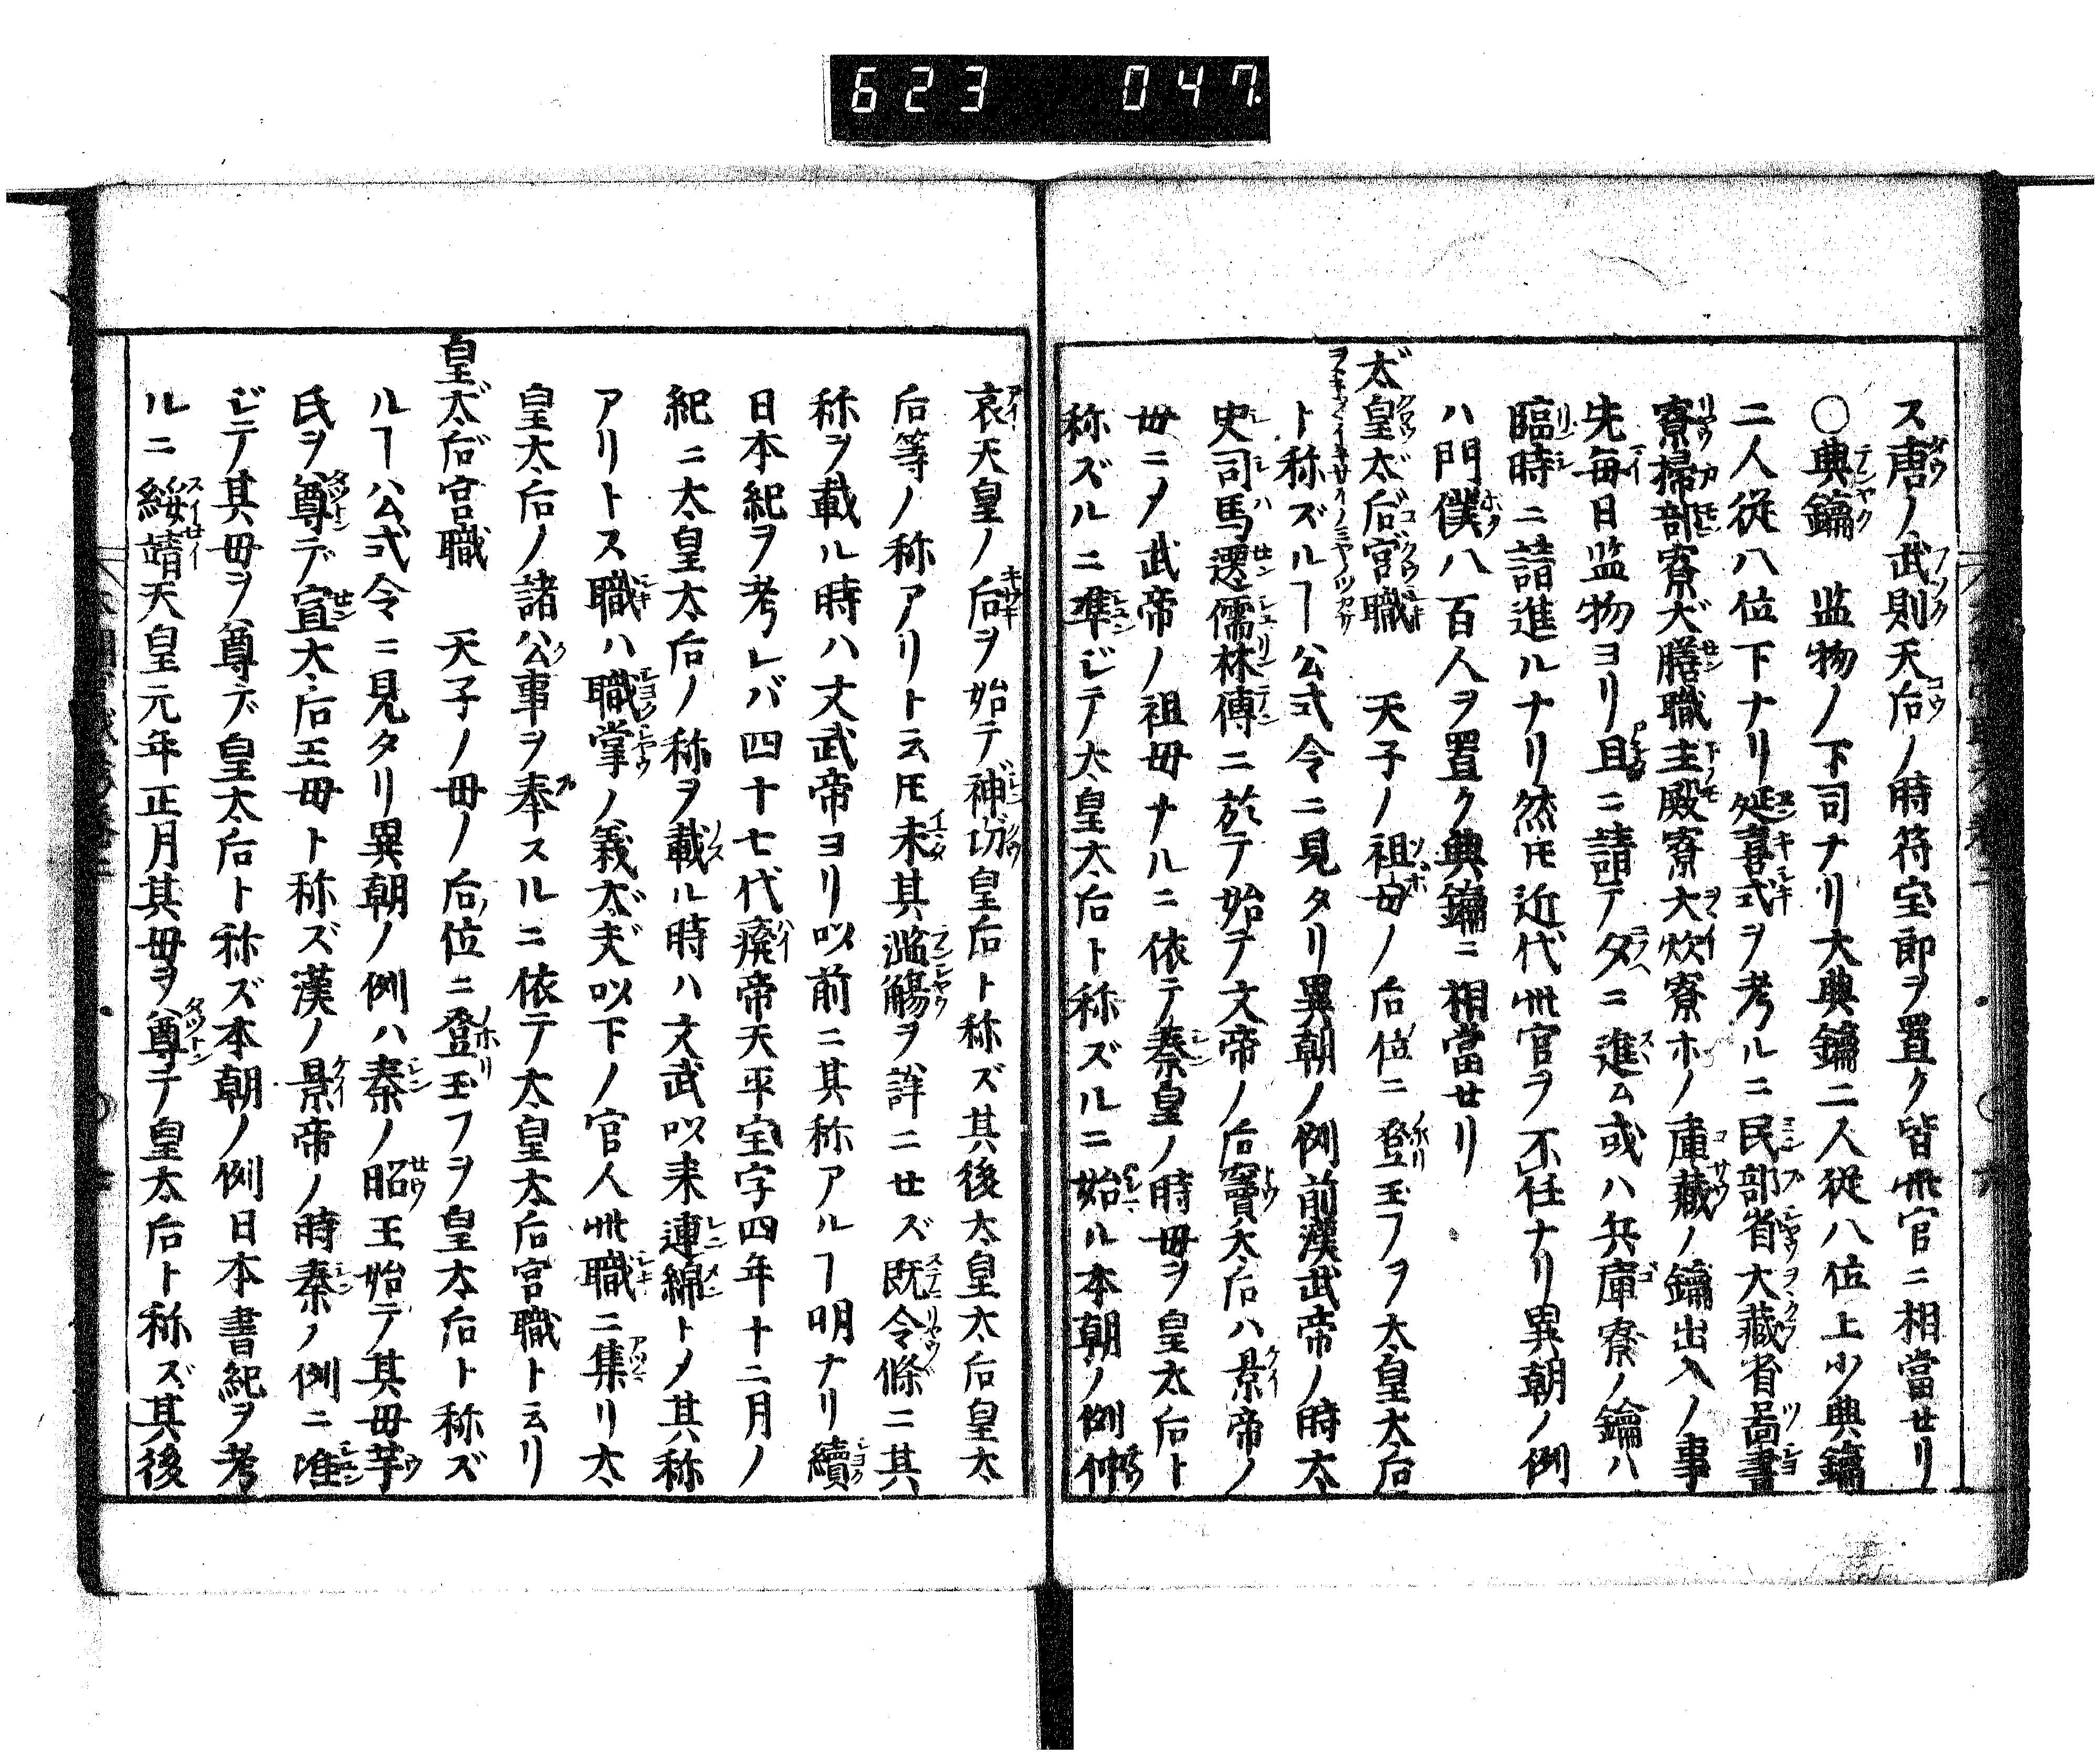 623 047.
ス唐ノ武則天后ノ時符宝郎ヲ置ク皆此官ニ相當せリ
〇典鑰　監物ノ下司ナリ大典鑰二人従八位上少典鑰
二人従八位下ナリ延喜式ヲ考ルニ民部省大蔵省啚書
寮掃部寮大膳職主殿寮大炊寮ホノ庫蔵ノ鑰出入ノ事
先毎日监物ヨリ旦ニ請テ夕ニ進ム或ハ兵庫寮ノ鑰ハ
臨時ニ請進ルナリ然𪜈近代此官ヲ不任ナリ異朝ノ例
ハ門僕八百人ヲ置ク典鑰ニ相當せリ
太皇太后宮職　天子ノ祖母ノ后位ニ登玉フヲ太皇太后
ト称ズルヿ公式令ニ見タリ異朝ノ例前漢武帝ノ時太
史司馬遷儒林傳ニ於テ始テ文帝ノ后竇太后ハ景帝ノ
毋ニ〆武帝ノ祖毋ナルニ依テ秦皇ノ時毋ヲ皇太后ト
称ズルニ準ジテ太皇太后ト称ズルニ始ル本朝ノ例仲
哀天皇ノ后ヲ始テ神功皇后ト称ズ其後太皇太后皇太
后等ノ称アリト云𪜈未其濫觴ヲ詳ニせズ既令條ニ其
称ヲ載ル時ハ文武帝ヨリ以前ニ其称アルヿ明ナリ續
日本紀ヲ考レバ四十七代廃帝天平宝字四年十二月ノ
紀ニ太皇太后ノ称ヲ載ル時ハ文武以来連綿ト〆其称
アリトス職ハ職掌ノ義大夫以下ノ官人此職ニ集リ太
皇太后ノ諸公事ヲ奉スルニ依テ太皇太后宮職ト云リ
皇太后宮職　天子ノ毋ノ后位ニ登玉フヲ皇太后ト称ズ
ルヿハ公式令ニ見タリ異朝ノ例ハ秦ノ昭王始テ其毋芋
氏ヲ尊デ宣太后王毋ト称ズ漢ノ景帝ノ時秦ノ例ニ准
ジテ其毋ヲ尊デ皇太后ト称ズ本朝ノ例日本書紀ヲ考
ルニ綏靖天皇元年正月其毋ヲ尊テ皇太后ト称ズ其後